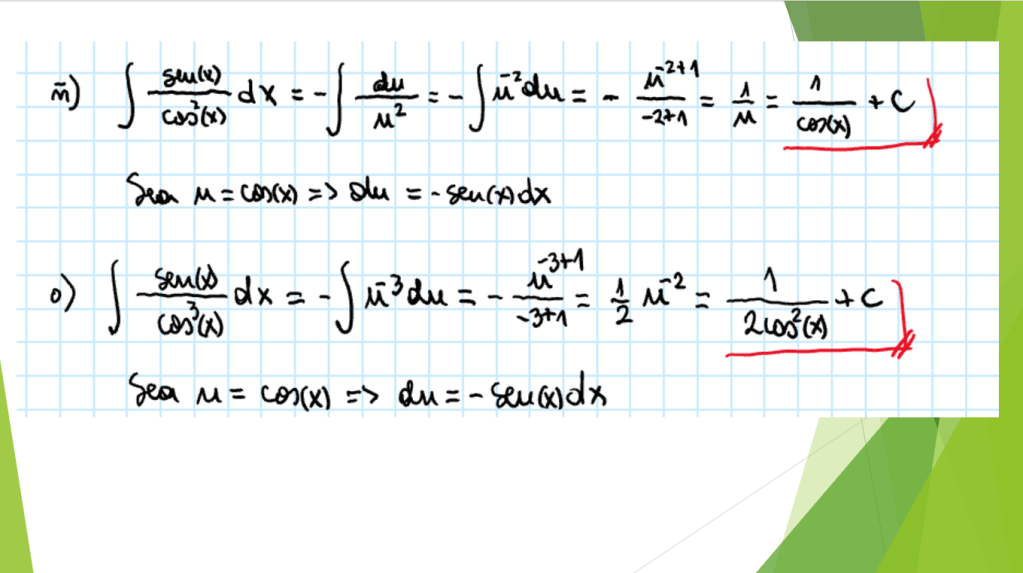 ñ) ∫ sen(x)/cos²(x) dx = -∫ du/u² = -∫ u⁻² du = - u⁻²⁺¹/-2+1 = 1/u = 1/cos(x) + C
Sea u = cos(x) => du = -sen(x)dx
o) ∫ sen(x)/cos³(x) dx = -∫ u⁻³ du = - u⁻³⁺¹/-3+1 = 1/2 u⁻² = 1/2cos²(x) + C
Sea u = cos(x) => du = -sen(x)dx